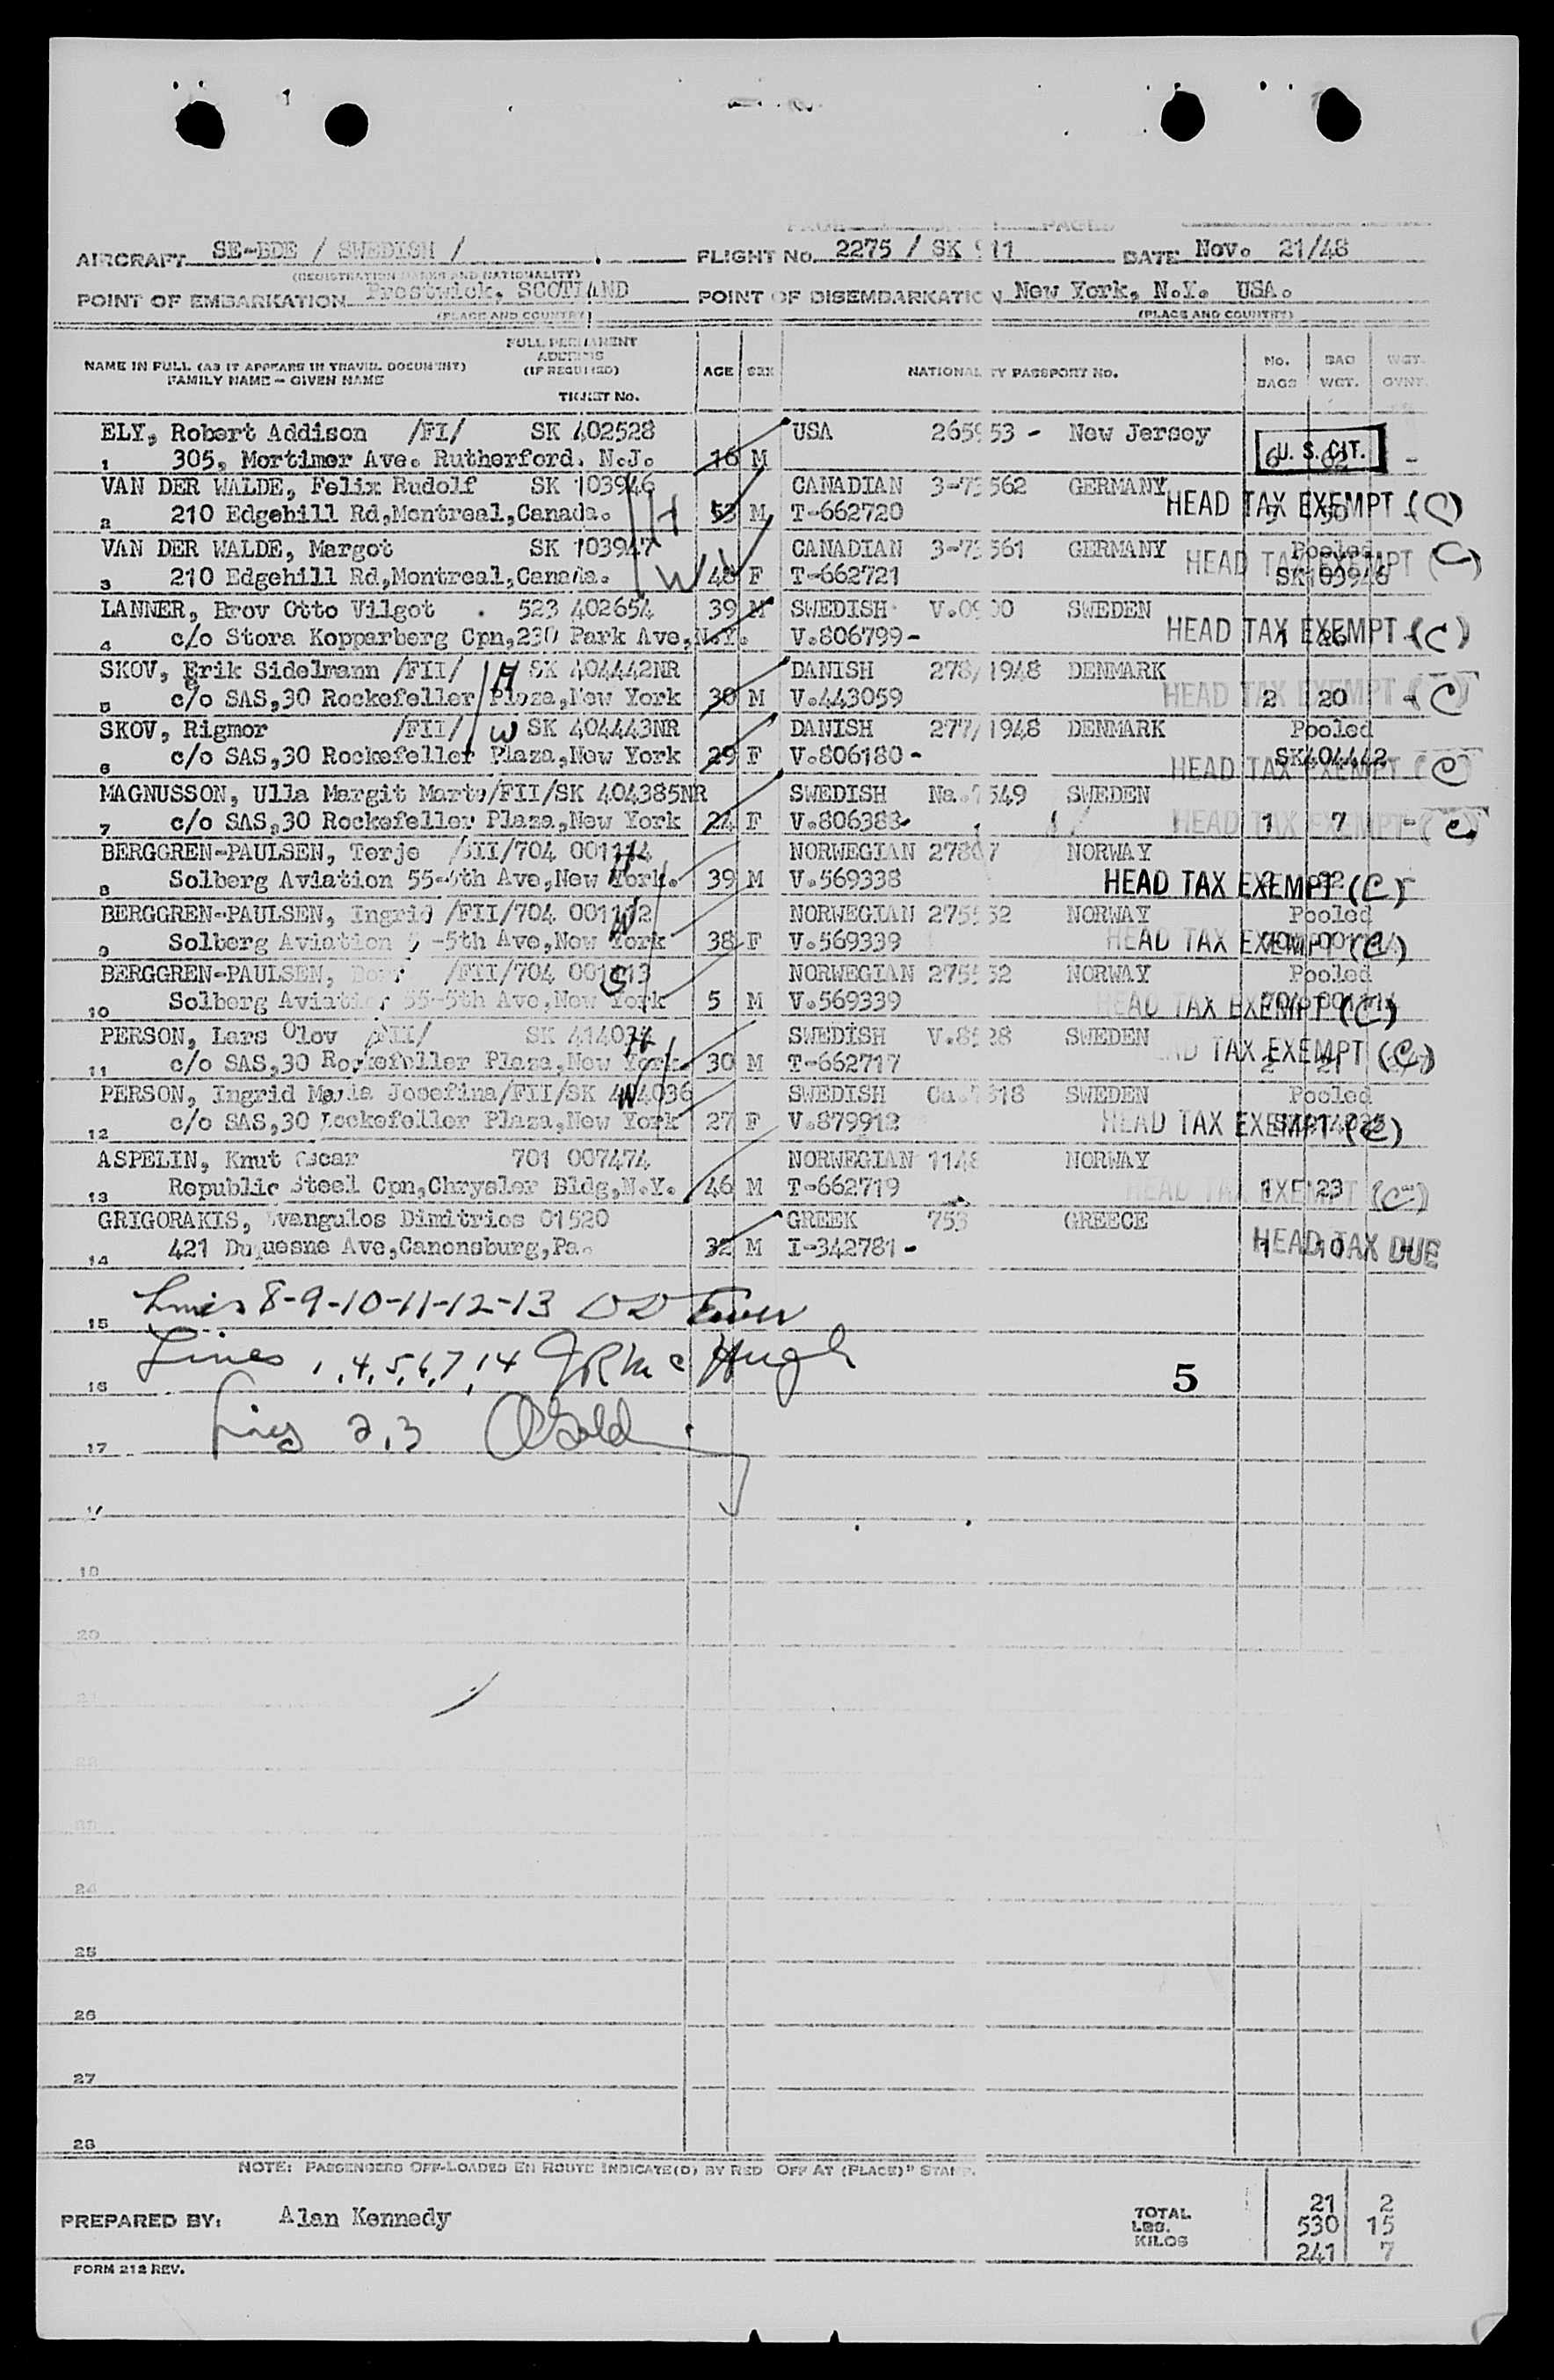 AIRCRAFT SE-BDE / SWEDISH / FLIGHT No. 2275 / SK 911 DATE Nov. 21/48
(REGISTRATION MARKS AND NATIONALITY)
POINT OF EMBARKATION Prestwick, SCOTLAND POINT OF DISEMBARKATION New York, N.Y. USA.
(PLACE AND COUNTRY) (PLACE AND COUNTRY)
NAME IN FULL (AS IT APPEARS IN TRAVEL DOCUMENT) FAMILY NAME - GIVEN NAME FULL PERMANENT ADDRESS (IF REQUIRED) TICKET No. AGE SEX NATIONALITY PASSPORT No. No. BAGS BAG WGT. WGT. OVWT.
ELY, Robert Addison /FI/ SK 402528 USA 265953 - New Jersey U. S. CIT.
1 305, Mortimer Ave. Rutherford. N.J. 16 M 6 -
VAN DER WALDE, Felix Rudolf SK 103946 CANADIAN 3-73562 GERMANY HEAD TAX EXEMPT (C)
2 210 Edgehill Rd,Montreal,Canada. H 53 M T-662720
VAN DER WALDE, Margot SK 103947 CANADIAN 3-73561 GERMANY Pooled HEAD TAX EXEMPT (C)
3 210 Edgehill Rd,Montreal,Canada. W 48 F T-662721 SK 103946
LANNER, Brov Otto Vilgot 523 402654 39 M SWEDISH SWEDEN
4 c/o Stora Kopparberg Cpn,230 Park Ave,N.Y. V.806799- HEAD TAX EXEMPT (C) 1 26 -
SKOV, Erik Sidelmann /FII/ H SK 404442NR DANISH 278/1948 DENMARK
5 c/o SAS,30 Rockefeller Plaza,New York 30 M V.443059 HEAD TAX EXEMPT (C) 2 20 -
SKOV, Rigmor /FII/ W SK 404443NR DANISH 277/1948 DENMARK Pooled
6 c/o SAS,30 Rockefeller Plaza,New York 29 F V.806180 - SK404442 HEAD TAX EXEMPT (C)
MAGNUSSON, Ulla Margit Marta/FII/SK 404385NR SWEDISH Na.7549 SWEDEN
7 c/o SAS,30 Rockefeller Plaza,New York 24 F V.806383- HEAD TAX EXEMPT (C) 1 7 -
BERGGREN-PAULSEN, Terje /FII/704 001114 H NORWEGIAN NORWAY
8 Solberg Aviation 55-5th Ave,New York. 39 M V.569338 HEAD TAX EXEMPT (C)
BERGGREN-PAULSEN, Ingrid /FII/704 W NORWEGIAN NORWAY Pooled
9 Solberg Aviation -5th Ave,New York 38 F V.569339 HEAD TAX EXEMPT (C)
BERGGREN-PAULSEN, /FII/704 NORWEGIAN NORWAY Pooled
10 Solberg Aviation 55-5th Ave,New York 5 M V.569339 HEAD TAX EXEMPT (C)
PERSON, Lars Olov /FII/ SK H SWEDISH SWEDEN
11 c/o SAS,30 Rockefeller Plaza,New York 30 M T-662717 HEAD TAX EXEMPT (C) 2 21
PERSON, Ingrid Maria Josefina/FII/SK 414036 W SWEDISH SWEDEN Pooled
12 c/o SAS,30 Rockefeller Plaza,New York 27 F V.879912 HEAD TAX EXEMPT (C)
ASPELIN, Knut Oscar 701 007474 NORWEGIAN 1148 NORWAY
13 Republic Steel Cpn,Chrysler Bldg,N.Y. 46 M T-662719 HEAD TAX EXEMPT (C) 1 23
GRIGORAKIS, Evangulos Dimitrios 01520 GREEK 753 GREECE
14 421 Duquesne Ave,Canonsburg,Pa. 32 M I-342781 - HEAD TAX DUE 1 10
15 Lines 8-9-10-11-12-13
16 Lines 1,4,5,6,7,14 JR McHugh 5
17 Lines 2,3
19
20
24
25
26
27
28
NOTE: PASSENGERS OFF-LOADED EN ROUTE INDICATE(D) BY RED OFF AT (PLACE)" STAMP.
TOTAL 21 2
PREPARED BY: Alan Kennedy LBS. 530 15
KILOS 241 7
FORM 212 REV.